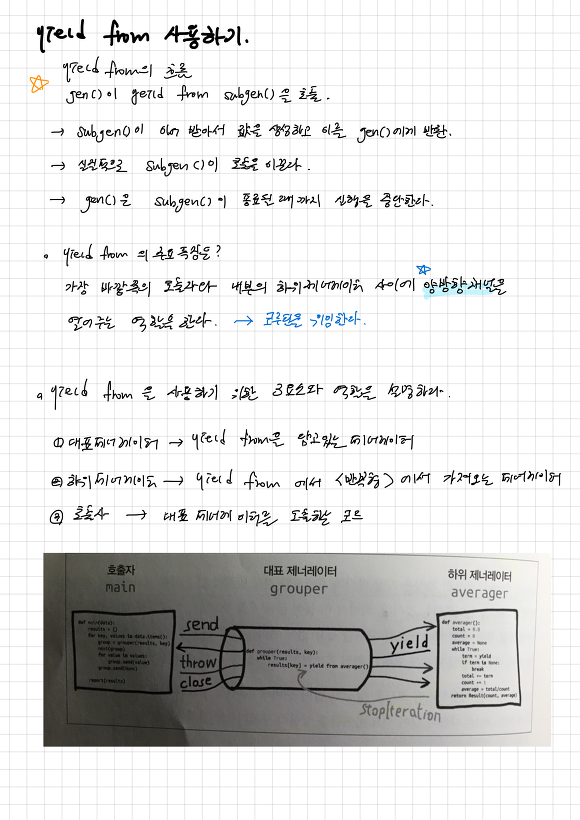 yield from 사용하기.
yield from의 흐름
gen()이 yeild from subgen()을 호출.
→ subgen()이 이어 받아서 값을 생성하고 이를 gen()에게 반환.
→ 실질적으로 subgen()이 호출을 이끈다.
→ gen()은 subgen()이 종료될 때까지 실행을 중단한다.
yield from 의 주요 특징은?
가장 바깥쪽의 호출자와 내부의 하위제너레이터 사이에 양방향 채널을
열어주는 역할을 한다. → 코루틴을 위임한다.
yield from 을 사용하기 위한 3요소와 역할을 설명하라.
① 대표제너레이터 → yield from을 담고있는 제너레이터
② 하위제너레이터 → yield from 에서 <반복형> 에서 가져오는 제너레이터
③ 호출자 → 대표 제너레이터를 호출하는 코드
호출자 대표 제너레이터 하위 제너레이터
main grouper averager
def main(data):
results = {}
for key, values in data.items():
group = grouper(results, key)
next(group)
for value in values:
group.send(value)
group.send(None)
report(results)
send
throw
close
def grouper(results, key):
while True:
results[key] = yield from averager()
yield
StopIteration
def averager():
total = 0.0
count = 0
average = None
while True:
term = yield
if term is None:
break
total += term
count += 1
average = total/count
return Result(count, average)